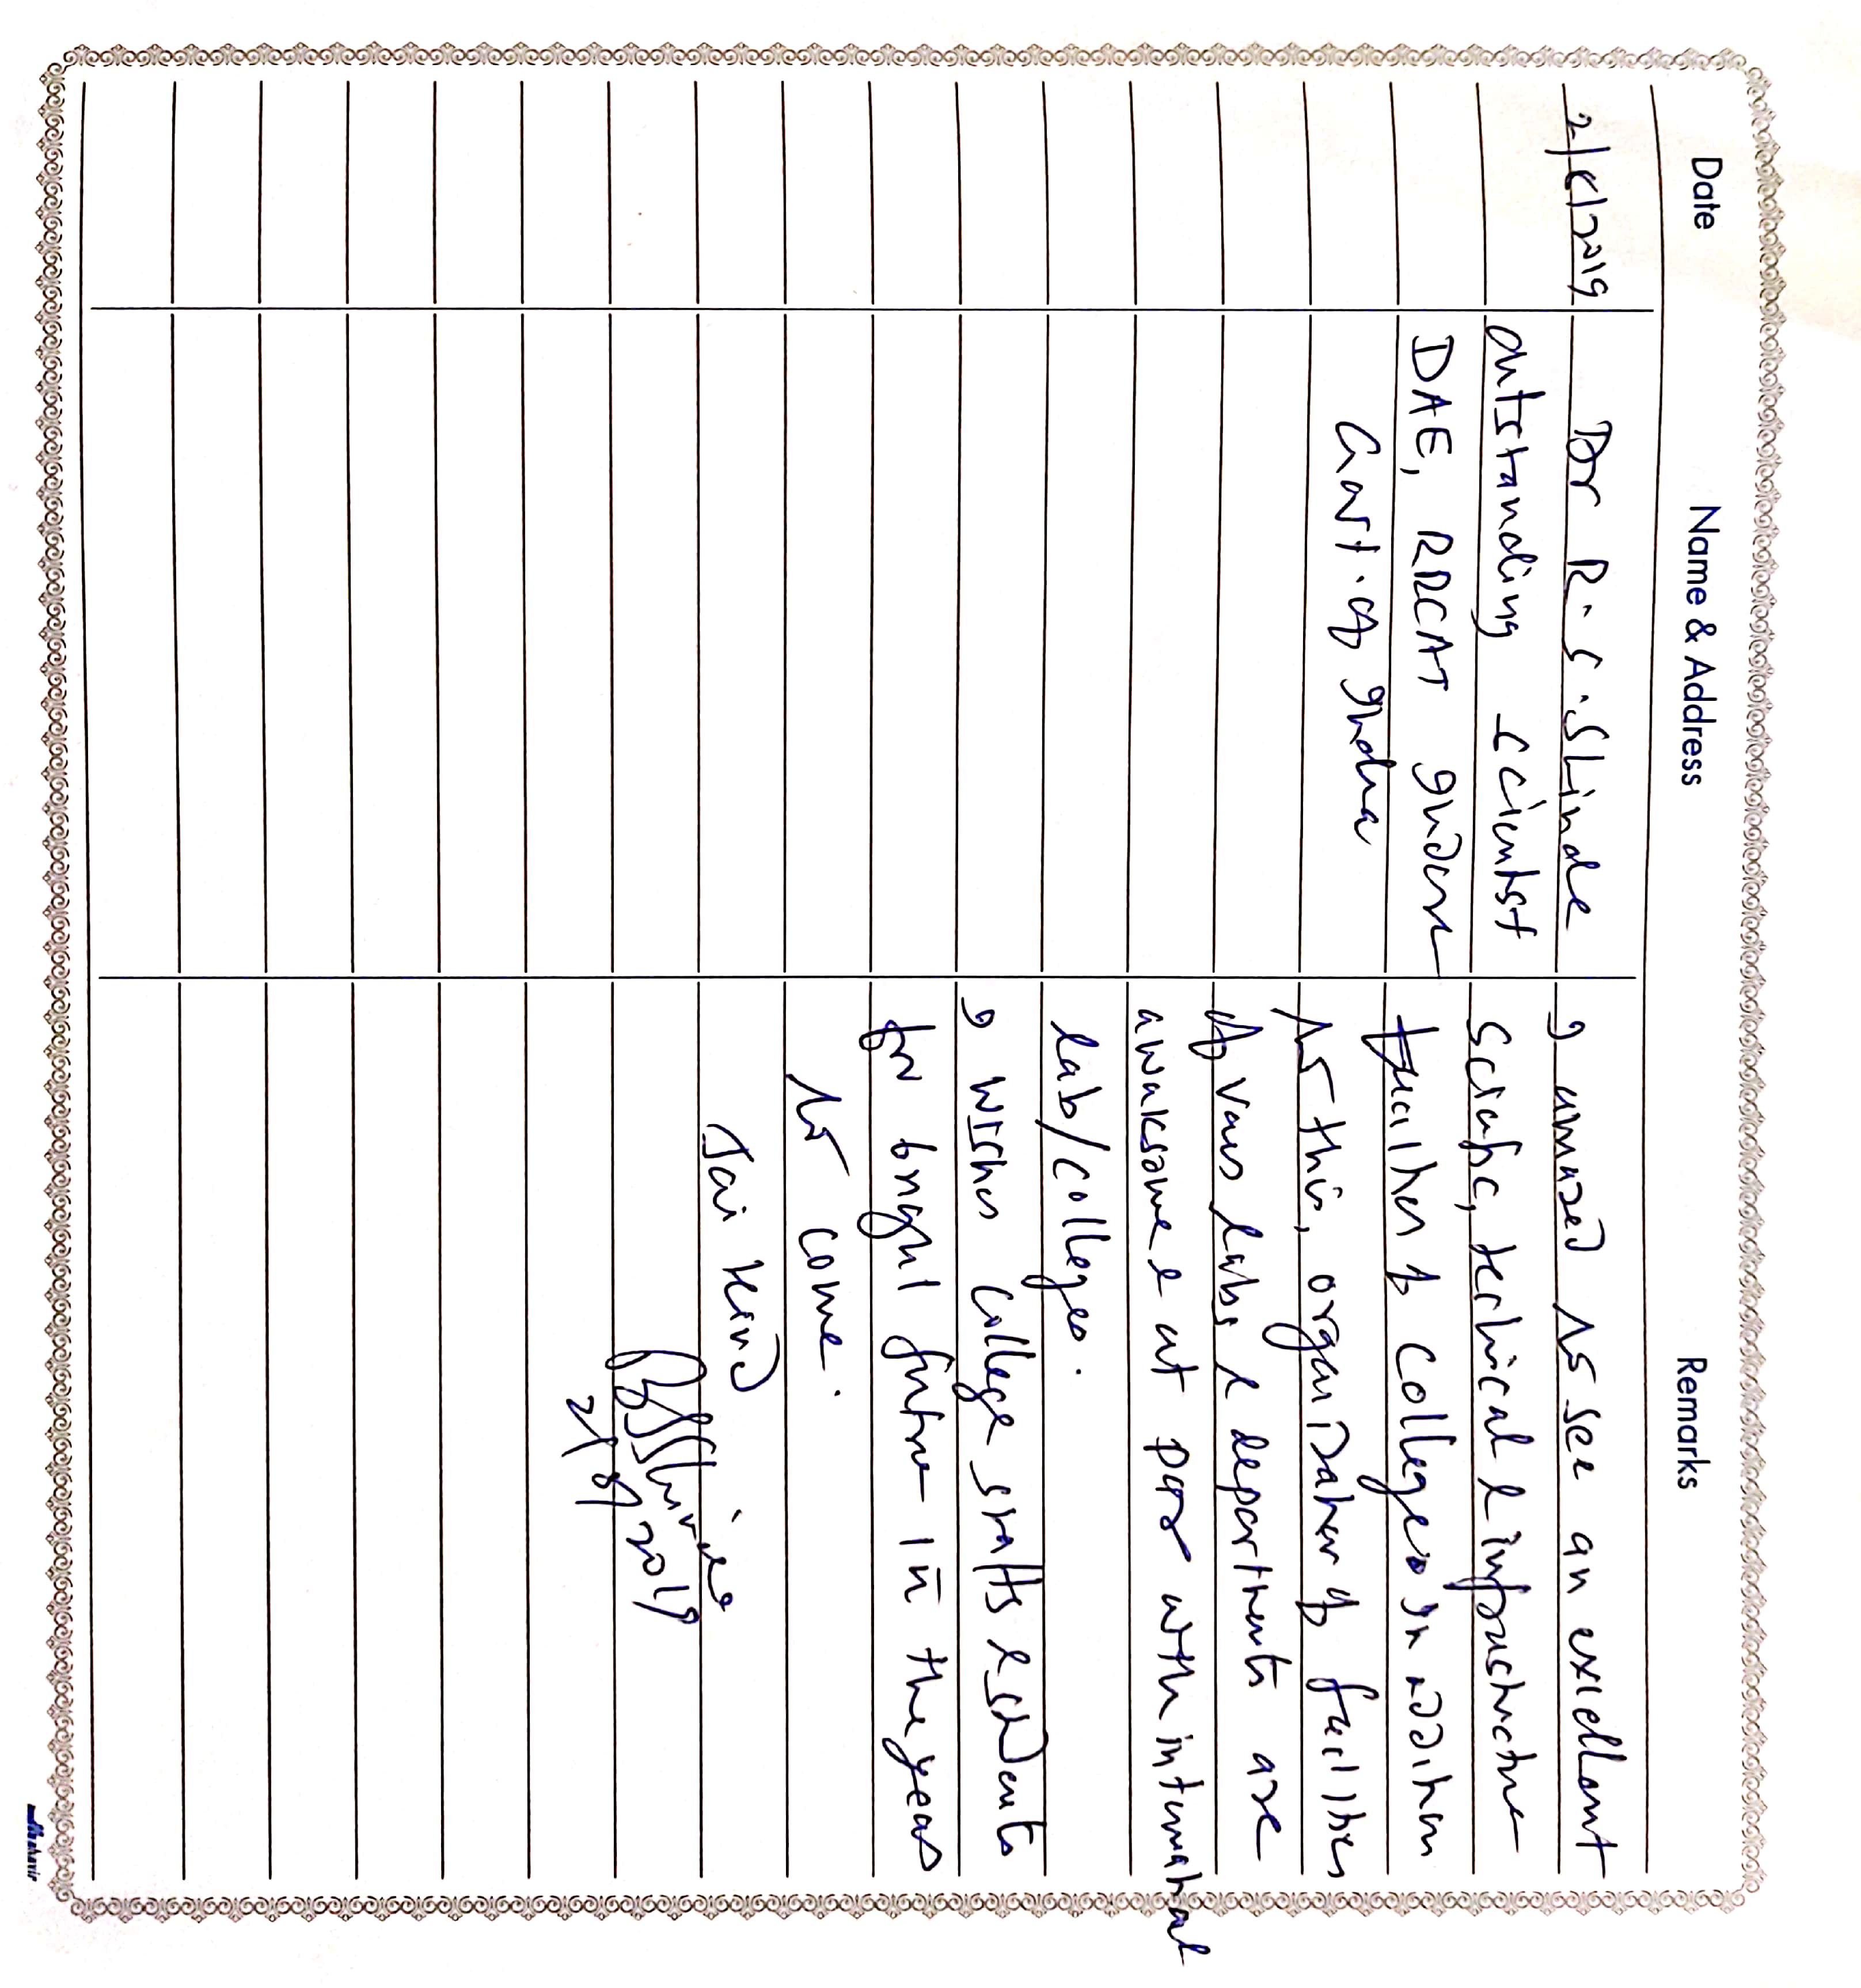 Date Name & Address Remarks
2/9/2019 Dr R. S. Shinde I amazed to see an excellant
outstanding scientist scientific, technical & infrastructure
DAE, RRCAT Indore facilities of colleges In addition
Govt. of India to this, organization of facilities
of various labs & departments are
awaksome at par with international
lab/colleges.
I wishes college staffs & students
for bright future in the years
to come.
Jai Hind
RSShinde
2/9/2019